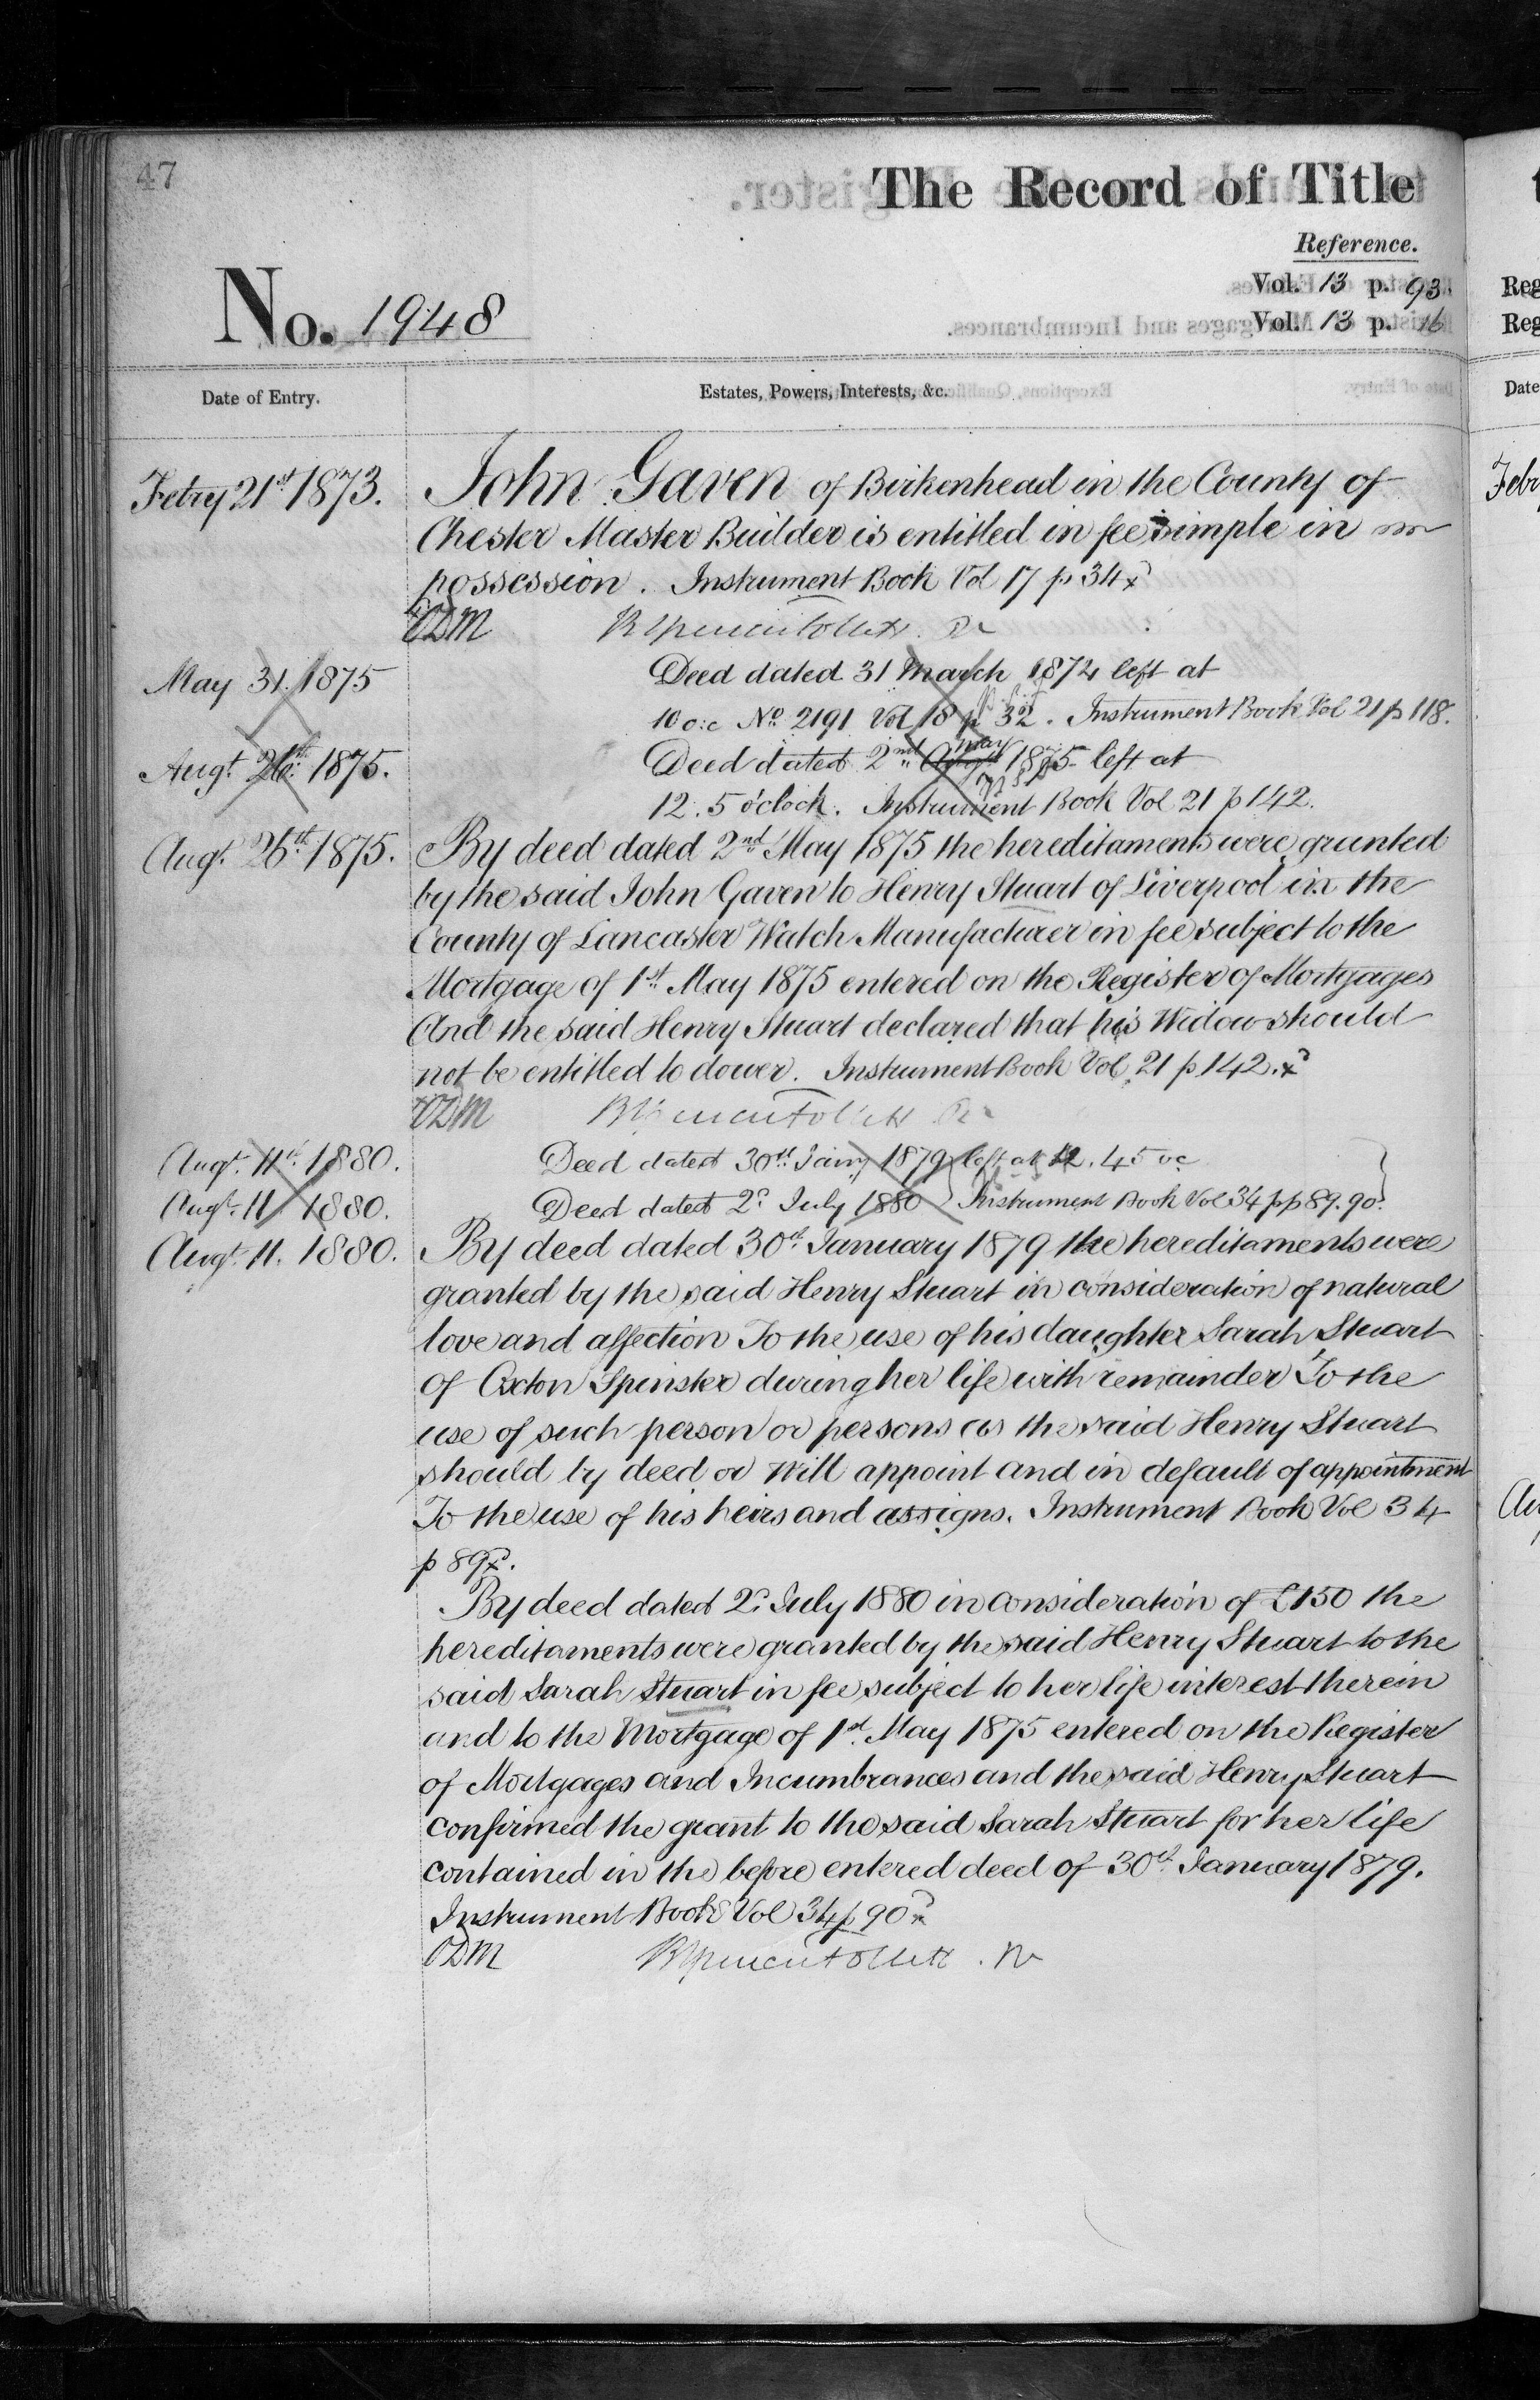 47
The Record of Title
Reference.
Vol. 13 p. 93.
No. 1948
Vol. 13 p. 16
Date of Entry.
Estates, Powers, Interests, &c.
Febry 21st 1873.
John Gaven of Birkenhead in the County of
Chester Master Builder is entitled in fee simple in
possession. Instrument Book Vol 17 p 34
May 31. 1875
Deed dated 31 March 1874 left at
10 o.c No. 2191 Vol 18 p 32. Instrument Book Vol 21 p 118.
Augt. 26th 1875.
Deed dated 2nd May 1875 left at
12.5 o'clock. Instrument Book Vol 21 p 142.
Augt. 26th 1875.
By deed dated 2nd May 1875 the hereditaments were granted
by the said John Gaven to Henry Stuart of Liverpool in the
County of Lancaster Watch Manufacturer in fee subject to the
Mortgage of 1st May 1875 entered on the Register of Mortgages
And the said Henry Stuart declared that his Widow should
not be entitled to dower. Instrument Book Vol. 21 p 142.
Augt. 11th 1880.
Deed dated 30th Jany 1879 left at 12.45 oc
Augt. 11 1880.
Deed dated 2d July 1880 Instrument Book Vol 34 pp 89.90.
Augt. 11. 1880.
By deed dated 30th January 1879 the hereditaments were
granted by the said Henry Stuart in consideration of natural
love and affection To the use of his daughter Sarah Stuart
of Oxton Spinster during her life with remainder To the
use of such person or persons as the said Henry Stuart
should by deed or Will appoint and in default of appointment
To the use of his heirs and assigns. Instrument Book Vol 34
p 89.
By deed dated 2d July 1880 in consideration of £150 the
hereditaments were granted by the said Henry Stuart to the
said Sarah Stuart in fee subject to her life interest therein
and to the Mortgage of 1st May 1875 entered on the Register
of Mortgages and Incumbrances and the said Henry Stuart
confirmed the grant to the said Sarah Stuart for her life
contained in the before entered deed of 30th January 1879.
Instrument Book Vol 34 p 90
Reg
Reg
Date
Febr